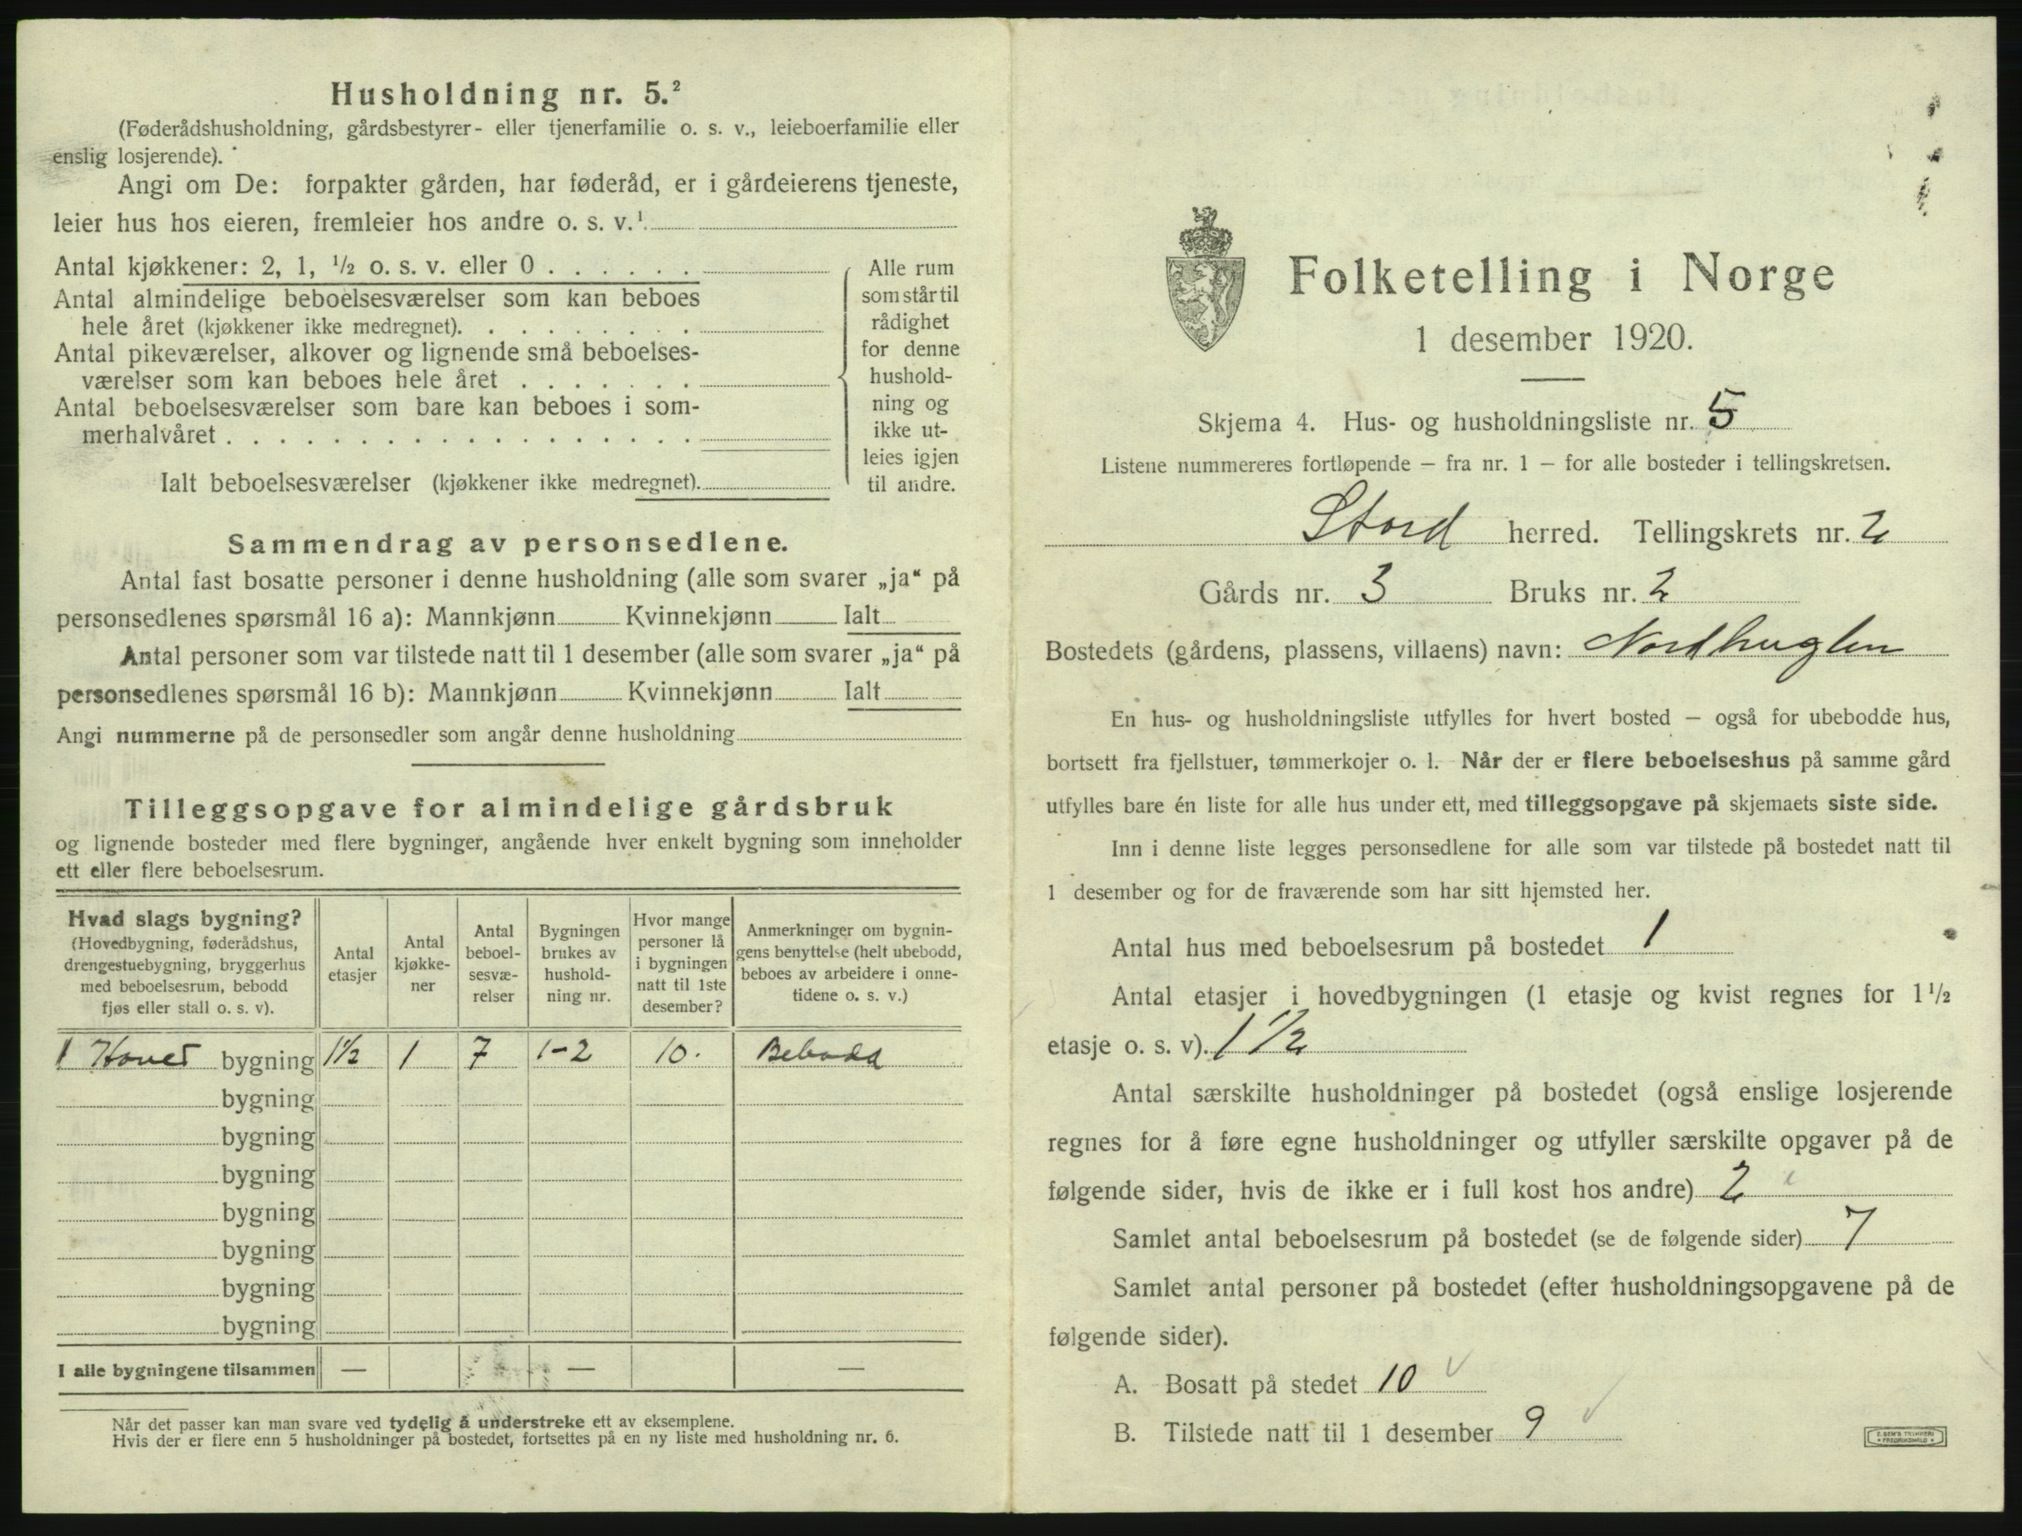 Husholdning nr. 5.²
(Føderådshusholdning, gårdsbestyrer- eller tjenerfamilie o. s. v., leieboerfamilie eller
enslig losjerende).
Angi om De: forpakter gården, har føderåd, er i gårdeierens tjeneste,
leier hus hos eieren, fremleier hos andre o. s. v.¹
Antal kjøkkener: 2, 1, ½ o. s. v. eller 0 . . . . . .
Antal almindelige beboelsesværelser som kan beboes
hele året (kjøkkener ikke medregnet). . . . . . . . .
Antal pikeværelser, alkover og lignende små beboelses-
værelser som kan beboes hele året . . . . . . .
Antal beboelsesværelser som bare kan beboes i som-
merhalvåret . . . . . . . . . . . . . . . . . .
Ialt beboelsesværelser (kjøkkener ikke medregnet).
Alle rum
som står til
rådighet
for denne
hushold-
ning og
ikke ut-
leies igjen
til andre.
Sammendrag av personsedlene.
Antal fast bosatte personer i denne husholdning (alle som svarer „ja“ på
personsedlenes spørsmål 16 a): Mannkjønn Kvinnekjønn Ialt
Antal personer som var tilstede natt til 1 desember (alle som svarer „ja“ på
personsedlenes spørsmål 16 b): Mannkjønn Kvinnekjønn Ialt
Angi nummerne på de personsedler som angår denne husholdning
Tilleggsopgave for almindelige gårdsbruk
og lignende bosteder med flere bygninger, angående hver enkelt bygning som inneholder
ett eller flere beboelsesrum.
Hvad slags bygning?
(Hovedbygning, føderådshus,
drengestuebygning, bryggerhus
med beboelsesrum, bebodd
fjøs eller stall o. s. v).
Antal
etasjer
Antal
kjøkke-
ner
Antal
beboel-
sesvæ-
relser
Bygningen
brukes av
hushold-
ning nr.
Hvor mange
personer lå
i bygningen
natt til 1ste
desember?
Anmerkninger om bygnin-
gens benyttelse (helt ubebodd,
beboes av arbeidere i onne-
tidene o. s. v.)
1 Hoved bygning 1½ 1 7 1-2 10. Bebodd
bygning
bygning
bygning
bygning
bygning
bygning
bygning
I alle bygningene tilsammen — — —
Når det passer kan man svare ved tydelig å understreke ett av eksemplene.
Hvis der er flere enn 5 husholdninger på bostedet, fortsettes på en ny liste med husholdning nr. 6.
Folketelling i Norge
1 desember 1920.
Skjema 4. Hus- og husholdningsliste nr. 5
Listene nummereres fortløpende – fra nr. 1 – for alle bosteder i tellingskretsen.
Stord herred. Tellingskrets nr. 2
Gårds nr. 3 Bruks nr. 2
Bostedets (gårdens, plassens, villaens) navn: Nordhuglen
En hus- og husholdningsliste utfylles for hvert bosted – også for ubebodde hus,
bortsett fra fjellstuer, tømmerkojer o. l. Når der er flere beboelseshus på samme gård
utfylles bare én liste for alle hus under ett, med tilleggsopgave på skjemaets siste side.
Inn i denne liste legges personsedlene for alle som var tilstede på bostedet natt til
1 desember og for de fraværende som har sitt hjemsted her.
Antal hus med beboelsesrum på bostedet 1
Antal etasjer i hovedbygningen (1 etasje og kvist regnes for 1½
etasje o. s. v). 1½
Antal særskilte husholdninger på bostedet (også enslige losjerende
regnes for å føre egne husholdninger og utfyller særskilte opgaver på de
følgende sider, hvis de ikke er i full kost hos andre) 2
Samlet antal beboelsesrum på bostedet (se de følgende sider) 7
Samlet antal personer på bostedet (efter husholdningsopgavene på de
følgende sider).
A. Bosatt på stedet 10
B. Tilstede natt til 1 desember 9